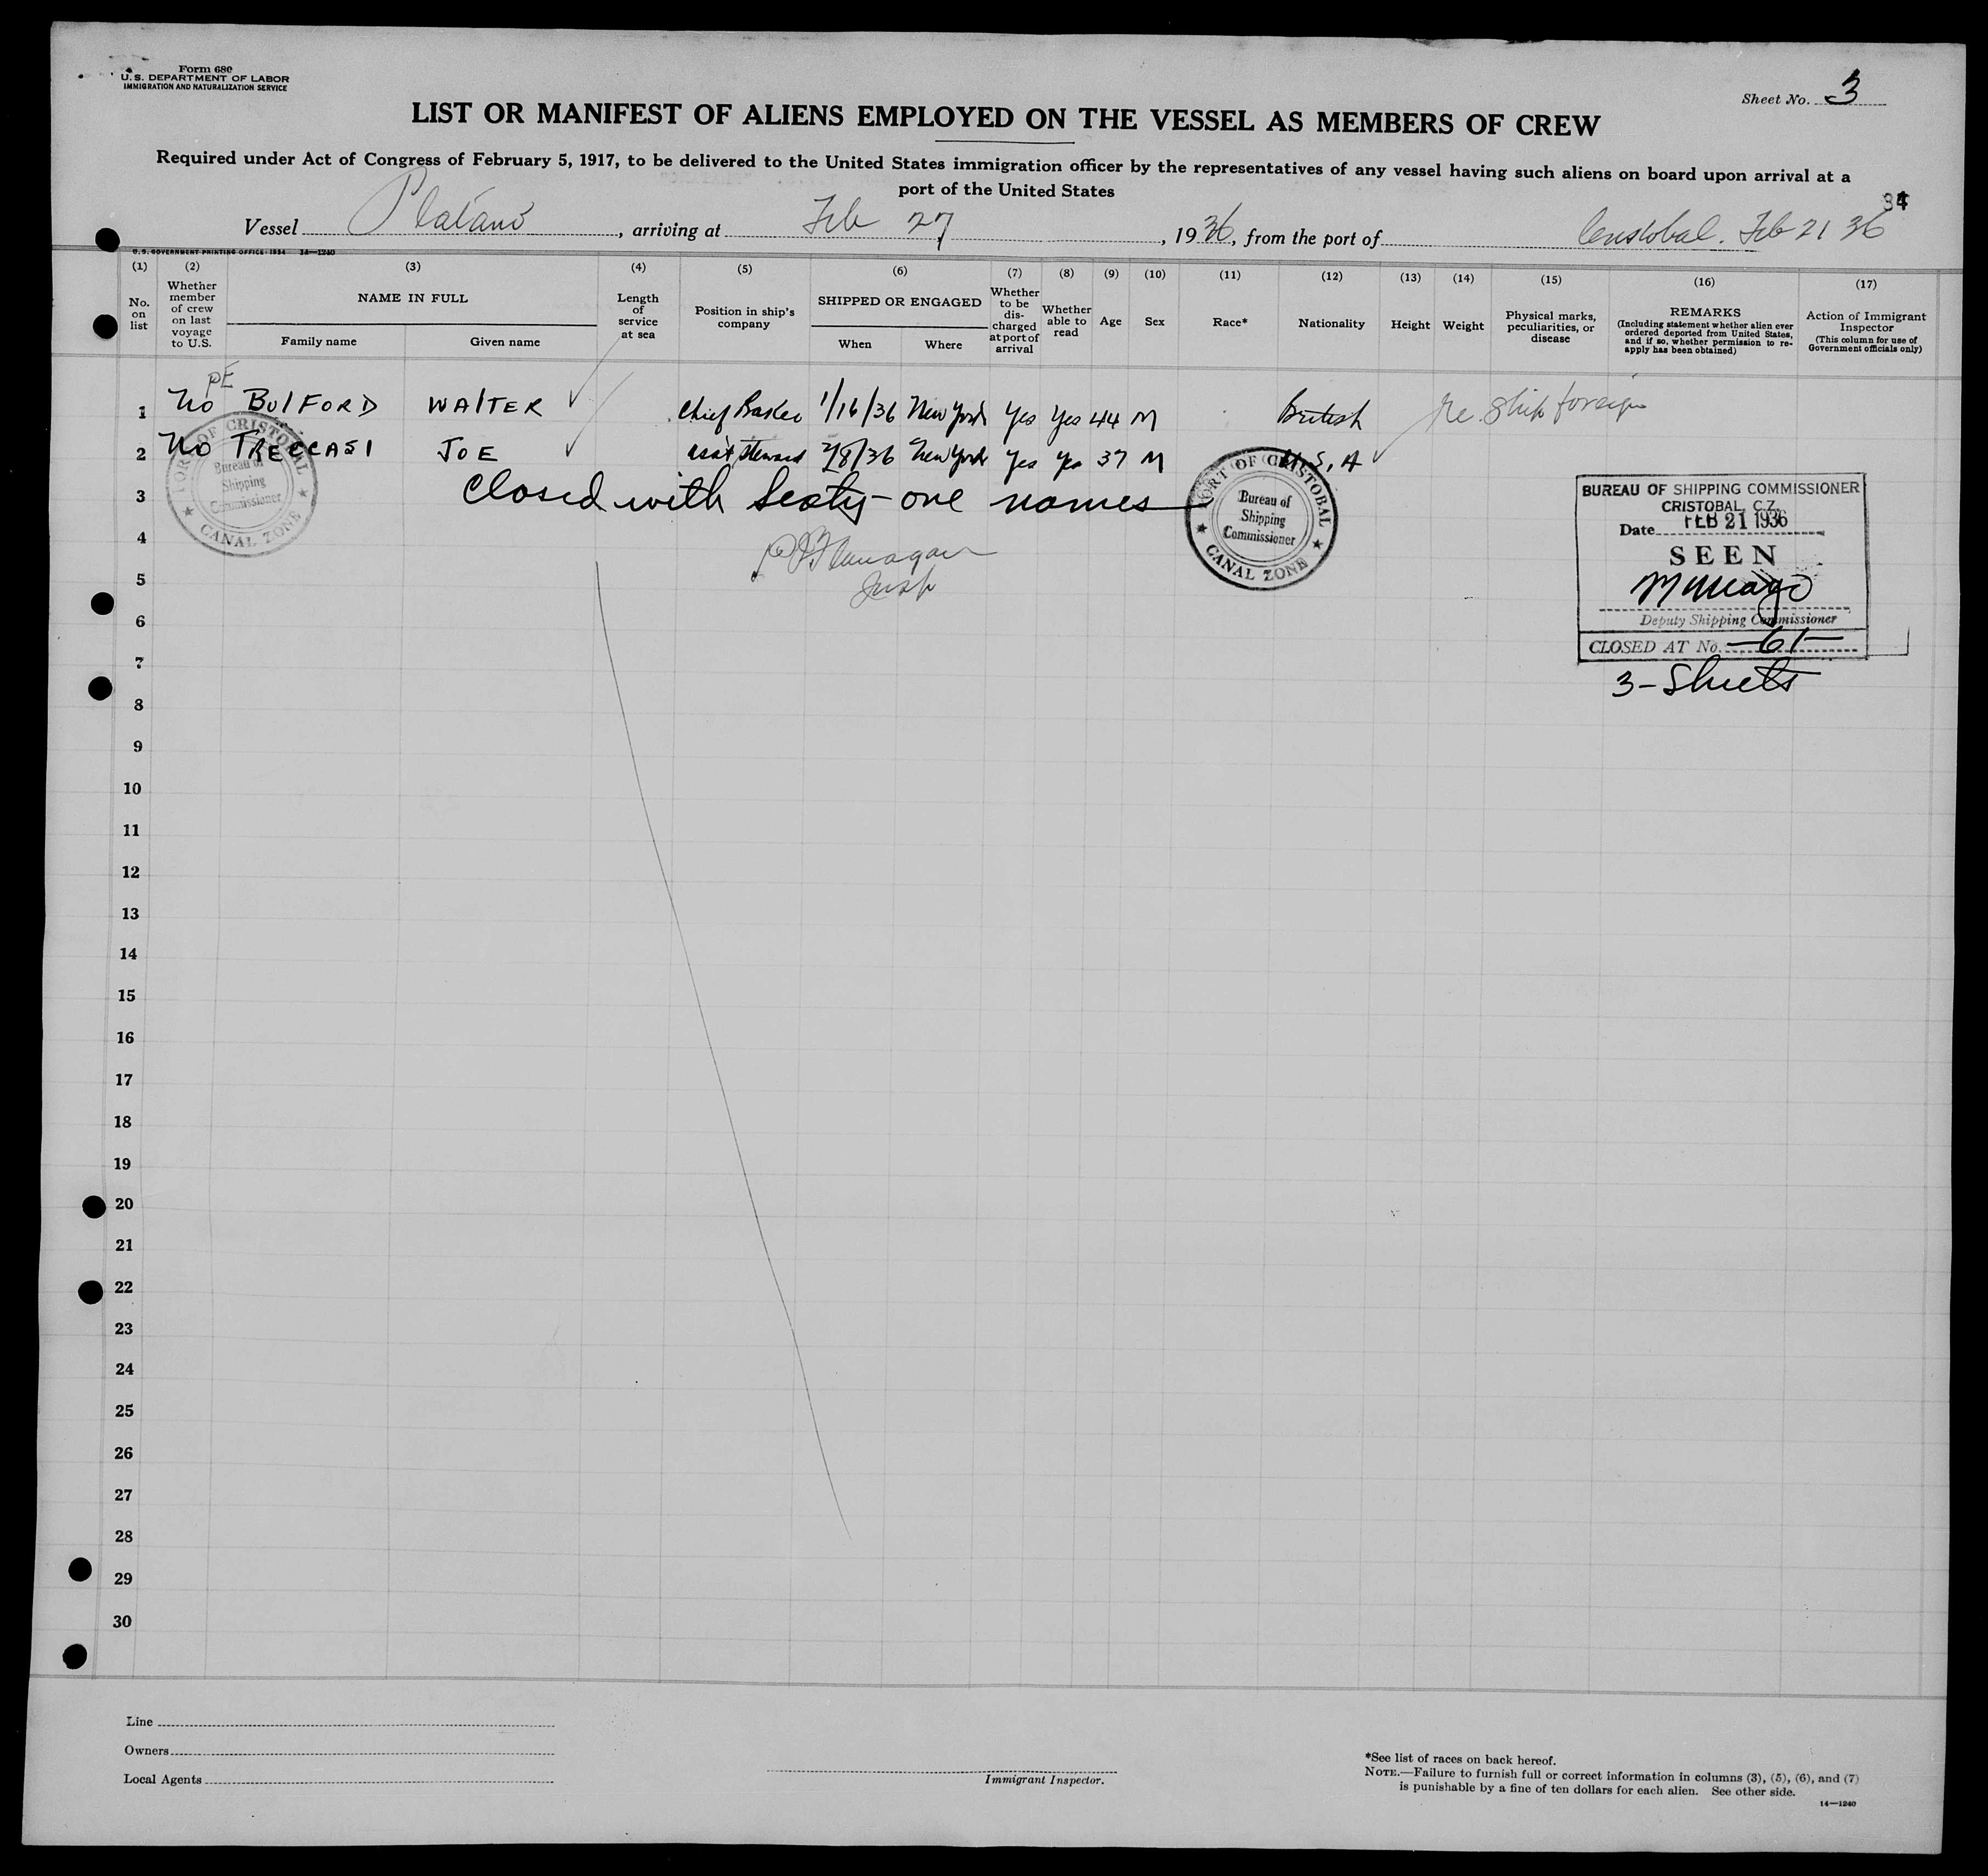 Form 680
U. S. DEPARTMENT OF LABOR
IMMIGRATION AND NATURALIZATION SERVICE
Sheet No. 3
LIST OR MANIFEST OF ALIENS EMPLOYED ON THE VESSEL AS MEMBERS OF CREW
Required under Act of Congress of February 5, 1917, to be delivered to the United States immigration officer by the representatives of any vessel having such aliens on board upon arrival at a
port of the United States
84
Vessel Platano, arriving at Feb 27, 1936, from the port of Cristobal. Feb 21 36
U.S. GOVERNMENT PRINTING OFFICE: 1934 14—1240
(1) (2) (3) (4) (5) (6) (7) (8) (9) (10) (11) (12) (13) (14) (15) (16) (17)
No. on list
Whether member of crew on last voyage to U.S.
NAME IN FULL
Family name
Given name
Length of service at sea
Position in ship's company
SHIPPED OR ENGAGED
When
Where
Whether to be discharged at port of arrival
Whether able to read
Age
Sex
Race*
Nationality
Height
Weight
Physical marks, peculiarities, or disease
REMARKS
(Including statement whether alien ever ordered deported from United States, and if so, whether permission to reapply has been obtained)
Action of Immigrant Inspector
(This column for use of Government officials only)
PE
1 No BulFORD WALTER Chief Baker 1/16/36 New York Yes Yes 44 M British Re ship foreign
2 No TRECCASI JOE asst steward 2/8/36 New York Yes Yes 37 M U.S.A
3 Closed with Sixty-one names
4
5
6
7
8
9
10
11
12
13
14
15
16
17
18
19
20
21
22
23
24
25
26
27
28
29
30
PORT OF CRISTOBAL
Bureau of
Shipping
Commissioner
CANAL ZONE
PORT OF CRISTOBAL
Bureau of
Shipping
Commissioner
CANAL ZONE
Flanagan
Insp
BUREAU OF SHIPPING COMMISSIONER
CRISTOBAL, C.Z.
Date FEB 21 1936
SEEN
Deputy Shipping Commissioner
CLOSED AT No. —61—
3-Sheets
Line
Owners
Local Agents
Immigrant Inspector.
*See list of races on back hereof.
NOTE.—Failure to furnish full or correct information in columns (3), (5), (6), and (7)
is punishable by a fine of ten dollars for each alien. See other side.
14—1240